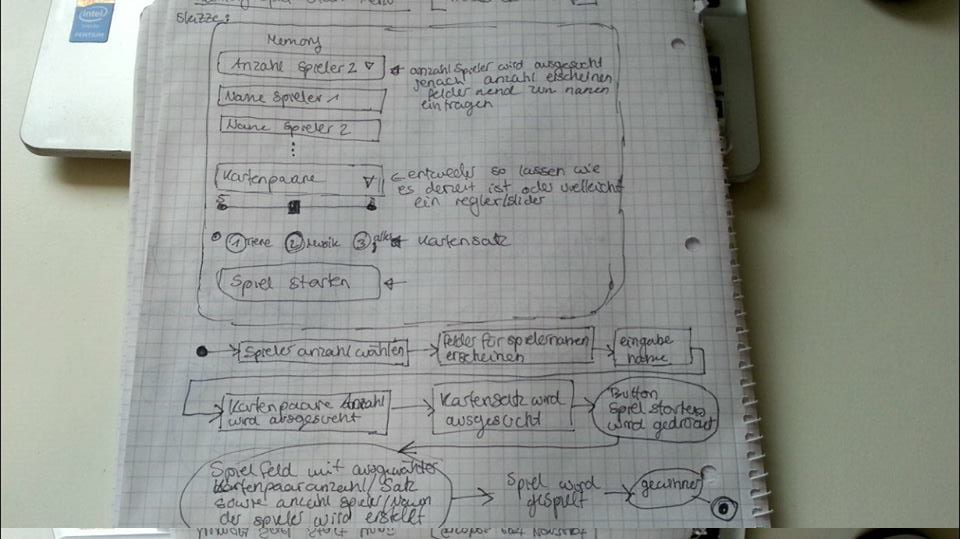 intel
PENTIUM
Skizze:
Memory
Anzahl Spieler 2
anzahl Spieler wird ausgesucht
jenach anzahl erscheinen
felder zum namen
eintragen
Name Spieler 1
Name Spieler 2
Kartenpaare
entweder so lassen wie
es derzeit ist oder vielleicht
ein regler/slider
1 Tiere 2 Musik 3 alles
Kartensatz
Spiel starten
Spieler anzahl wählen
felder für spielernamen
erscheinen
eingabe
name
Kartenpaare Anzahl
wird ausgesucht
Kartensatz wird
ausgesucht
Button
Spiel starten
wird gedrückt
Spielfeld mit ausgewählter
Kartenpaaranzahl/Satz
sowie anzahl spieler/Namen
der spieler wird erstellt
Spiel wird
gespielt
gewinner